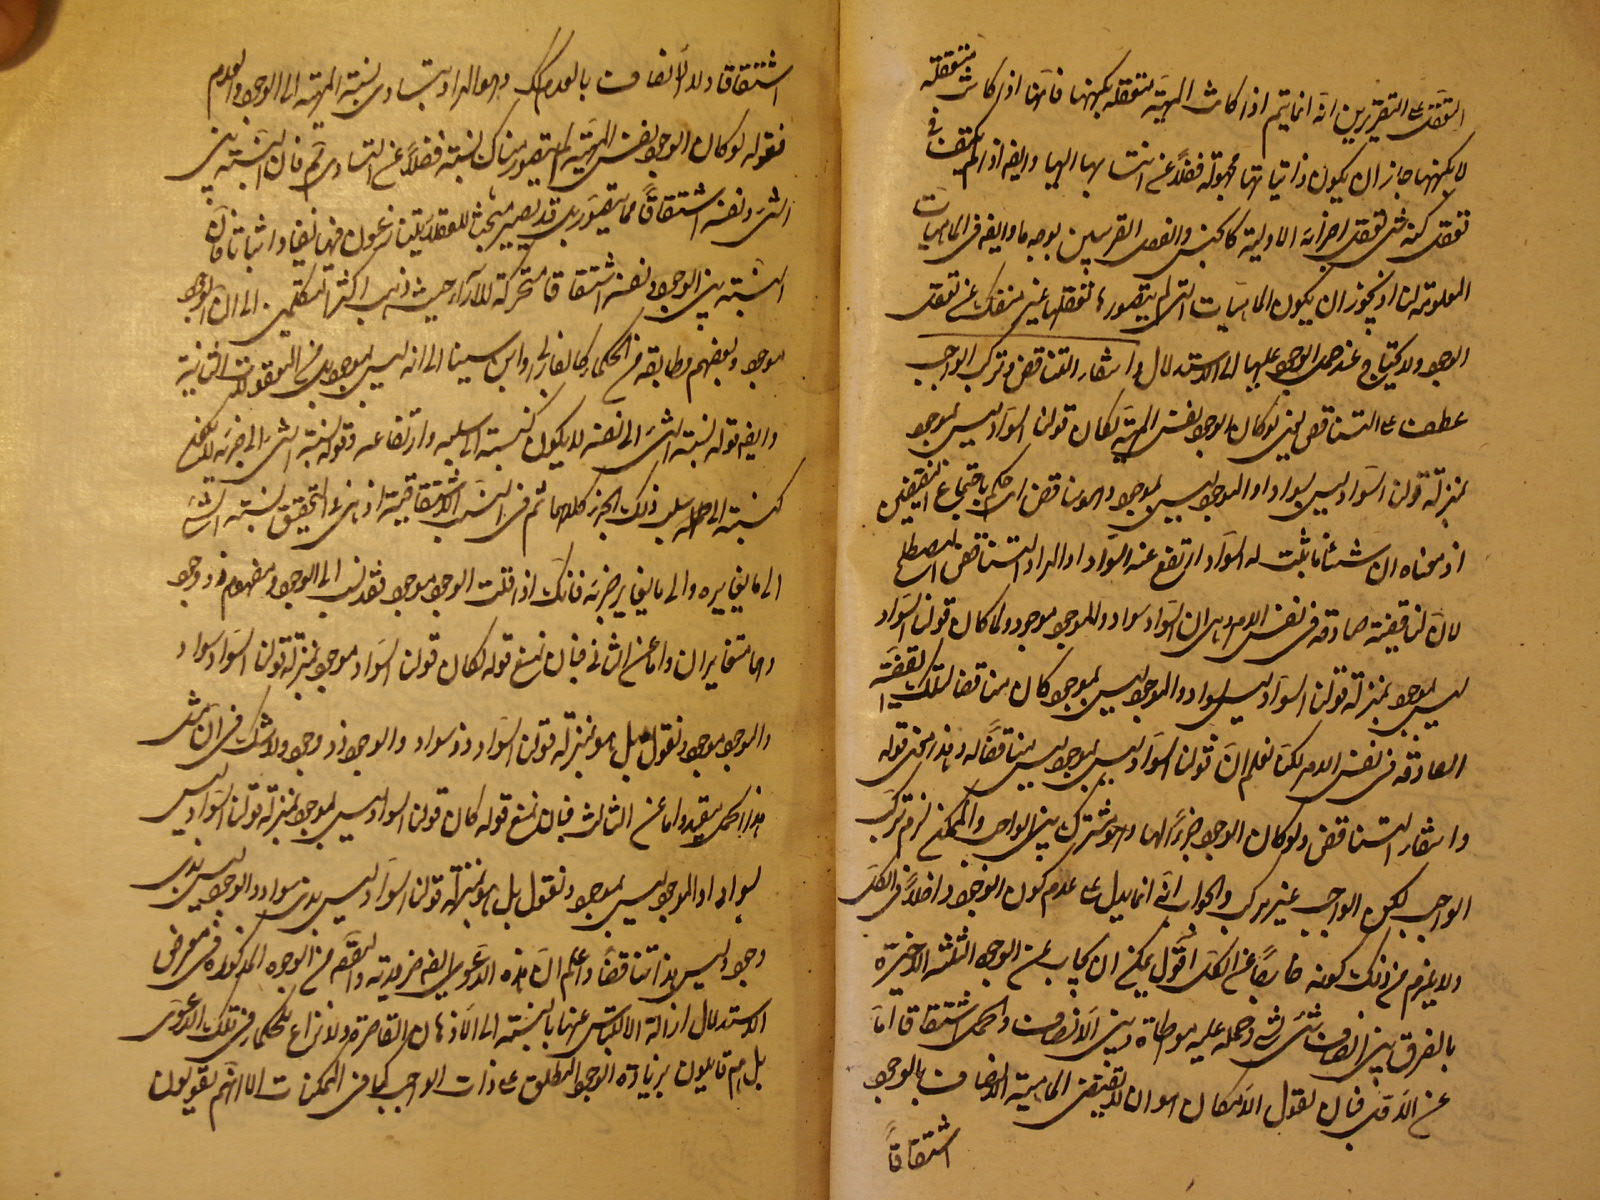 التعقل على التقريرين انه انما يتم اذا كانت المهية متعقلة بكنهها فانها اذا كانت متعقلة
لا بكنهها جاز ان يكون ذاتياتها مجهولة فضلا عن انتسابها اليها وايضه اذا لم يكتف في
تعقل كنه شئ بتعقل اجزائه الاولية كالجنس والفصل القريبين بوجه ما وايضه في الماهيات
المعلومة لنا اذ يجوز ان يكون الماهيات التى لم يتصورها تعقلها غير منفك عن تعقل
الوجود ولا يحتاج عند حمل الوجود عليها الى الاستدلال وانتفاء التناقض وتركب الواجب
عطف على التناقض يعنى لو كان الوجود نفس المهية لكان قولنا السواد ليس بموجود
بمنزلة قولنا السواد ليس بسواد او الموجود ليس بموجود وهو تناقض اى حكم باجتماع النقيضين
اذ معناه ان شيئا ما ثبت له السواد ارتفع عنه السواد او المراد التناقض المصطلح
لان لنا قضية صادقة في نفس الامر وهى ان السواد سواد والموجود موجود ولما كان قولنا السواد
ليس بموجود بمنزلة قولنا السواد ليس بسواد والموجود ليس بموجود كان مناقضا لتلك القضية
الصادقة في نفس الامر لكنا نعلم ان قولنا السواد ليس بموجود ليس مناقضا له وهذا معنى قوله
وانتفاء التناقض ولو كان الوجود جزءا لها وهو مشترك بين الواجب والممكن لزم تركب
الواجب لكن الواجب غير مركب والجواب انه انما يدل على عدم كون الوجود داخلا في الكل
ولا يلزم من ذلك كونه خارجا عن الكل اقول يمكن ان يجاب عن الوجوه الثلثة الاخيرة
بالفرق بين اتصاف شئ بشئ وحمله عليه مواطاة وبين الاتصاف والحمل اشتقاقا اما
عن الاول فبان نقول الامكان هو ان لا يقتضى الماهية الاتصاف بالوجود
اشتقاقا
اشتقاقا ولا الاتصاف بالعدم كك وهو المراد بتساوى نسبة المهية الى الوجود والعدم
فقوله لو كان الوجود نفس المهية لم يتصور هناك نسبة فضلا عن التساوى ثم فان النسبة بين
الشئ ونفسه اشتقاقا مما يتصور بل قد يصير مبحثا للعقلاء يتنازعون فيها نفيا واثباتا فان
النسبة بين الوجود ونفسه اشتقاقا معتركة للاراء حيث ذهب اكثر المتكلمين الى ان الوجود
موجود وبعضهم مطابقه من الحكماء كالفارابى وابن سينا الى انه ليس بموجود بل من المعقولات الثانية
وايضه قوله نسبة الشئ الى نفسه لا يكون كنسبته الى سلبه وارتفاعه وقوله نسبة الشئ الى جزئه لا يكون
كنسبته الى سلب ذلك الجزء كلاهما ثم في النسب الاشتقاقية اذ هى على التحقيق نسبة الشئ
الى ما يغايره والى ما يغاير جزئه فانك اذا قلت الوجود موجود فقد نسب الى الوجود مفهوم ذو وجود
وهما متغايران واما عن الثانى فبان نمنع قوله لكان قولنا السواد موجود بمنزلة قولنا السواد سواد
والموجود موجود ونقول بل هو بمنزلة قولنا السواد ذو سواد والوجود ذو وجود ولا شك في ان مثل
هذا الحمل مفيد واما عن الثالث فبان نمنع قوله كان قولنا السواد ليس بموجود بمنزلة قولنا السواد ليس
بسواد او الموجود ليس بموجود ونقول بل هو بمنزلة قولنا السواد ليس بذى سواد والوجود ليس بذى
وجود وليس هذا تناقضا واعلم ان هذه الدعوى ايضه ضرورية والمقصود من الوجوه المذكورة في معرض
الاستدلال ازالة الالتباس عنها بالنسبة الى الاذهان القاصرة ولا نزاع للحكماء في تلك الدعوى
بل هم قايلون بزيادة الوجود المطلق على ذات الواجب كما في الممكنات الا انهم يقولون